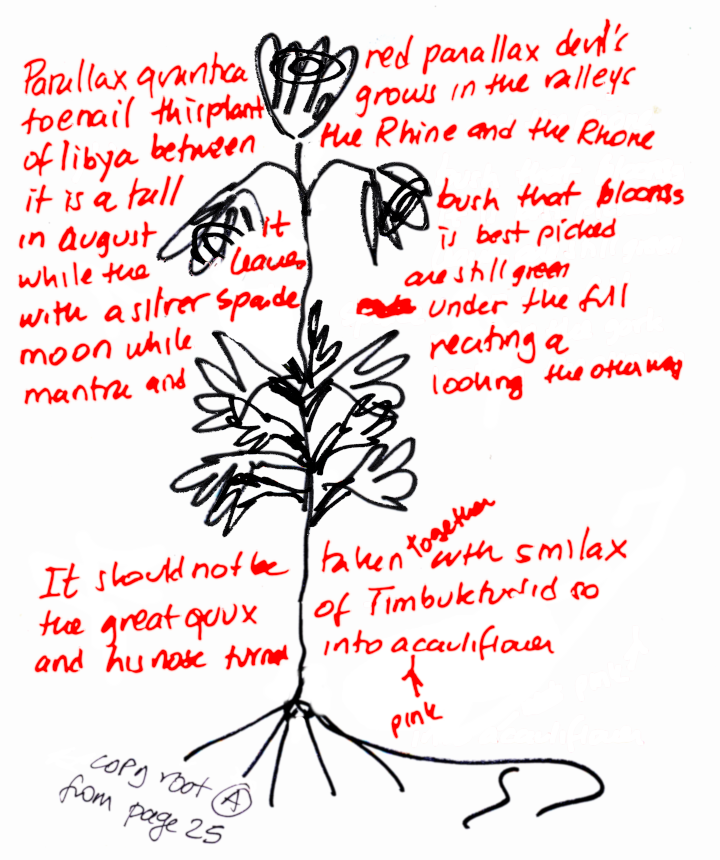 Parallax quantica red parallax devil's
toenail this plant grows in the valleys
of libya between the Rhine and the Rhone
it is a tall bush that blooms
in August it is best picked
while the leaves are still green
with a silver spade under the full
moon while reciting a
mantra and looking the other way
It should not be taken together with smilax
the great quux of Timbuktu did so
and his nose turned into a cauliflower
pink
copy root A
from page 25